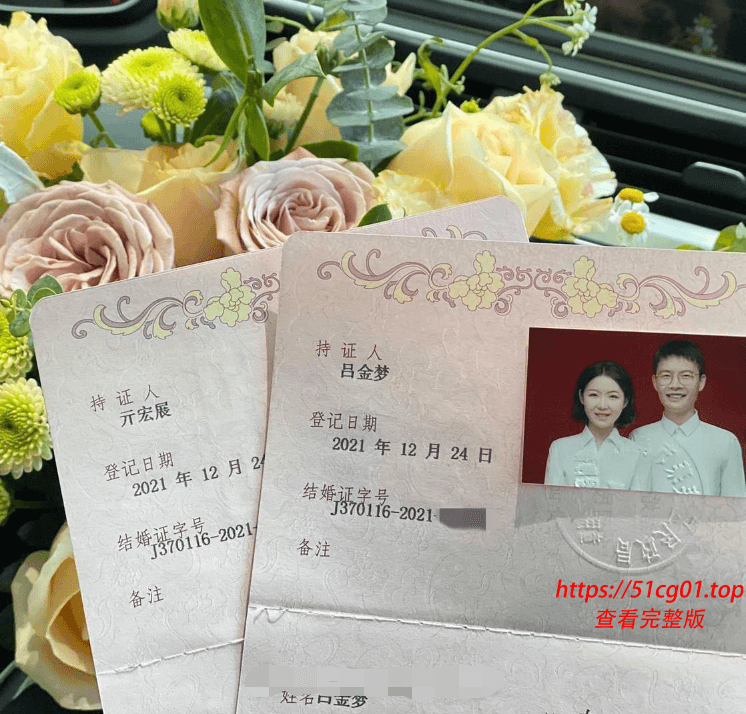 持证人
亓宏展
登记日期
2021 年 12 月 24
结婚证字号
J370116-2021-
备注
持证人
吕金梦
登记日期
2021 年 12 月 24 日
结婚证字号
J370116-2021-
备注
姓名吕金梦
https://51cg01.top
查看完整版